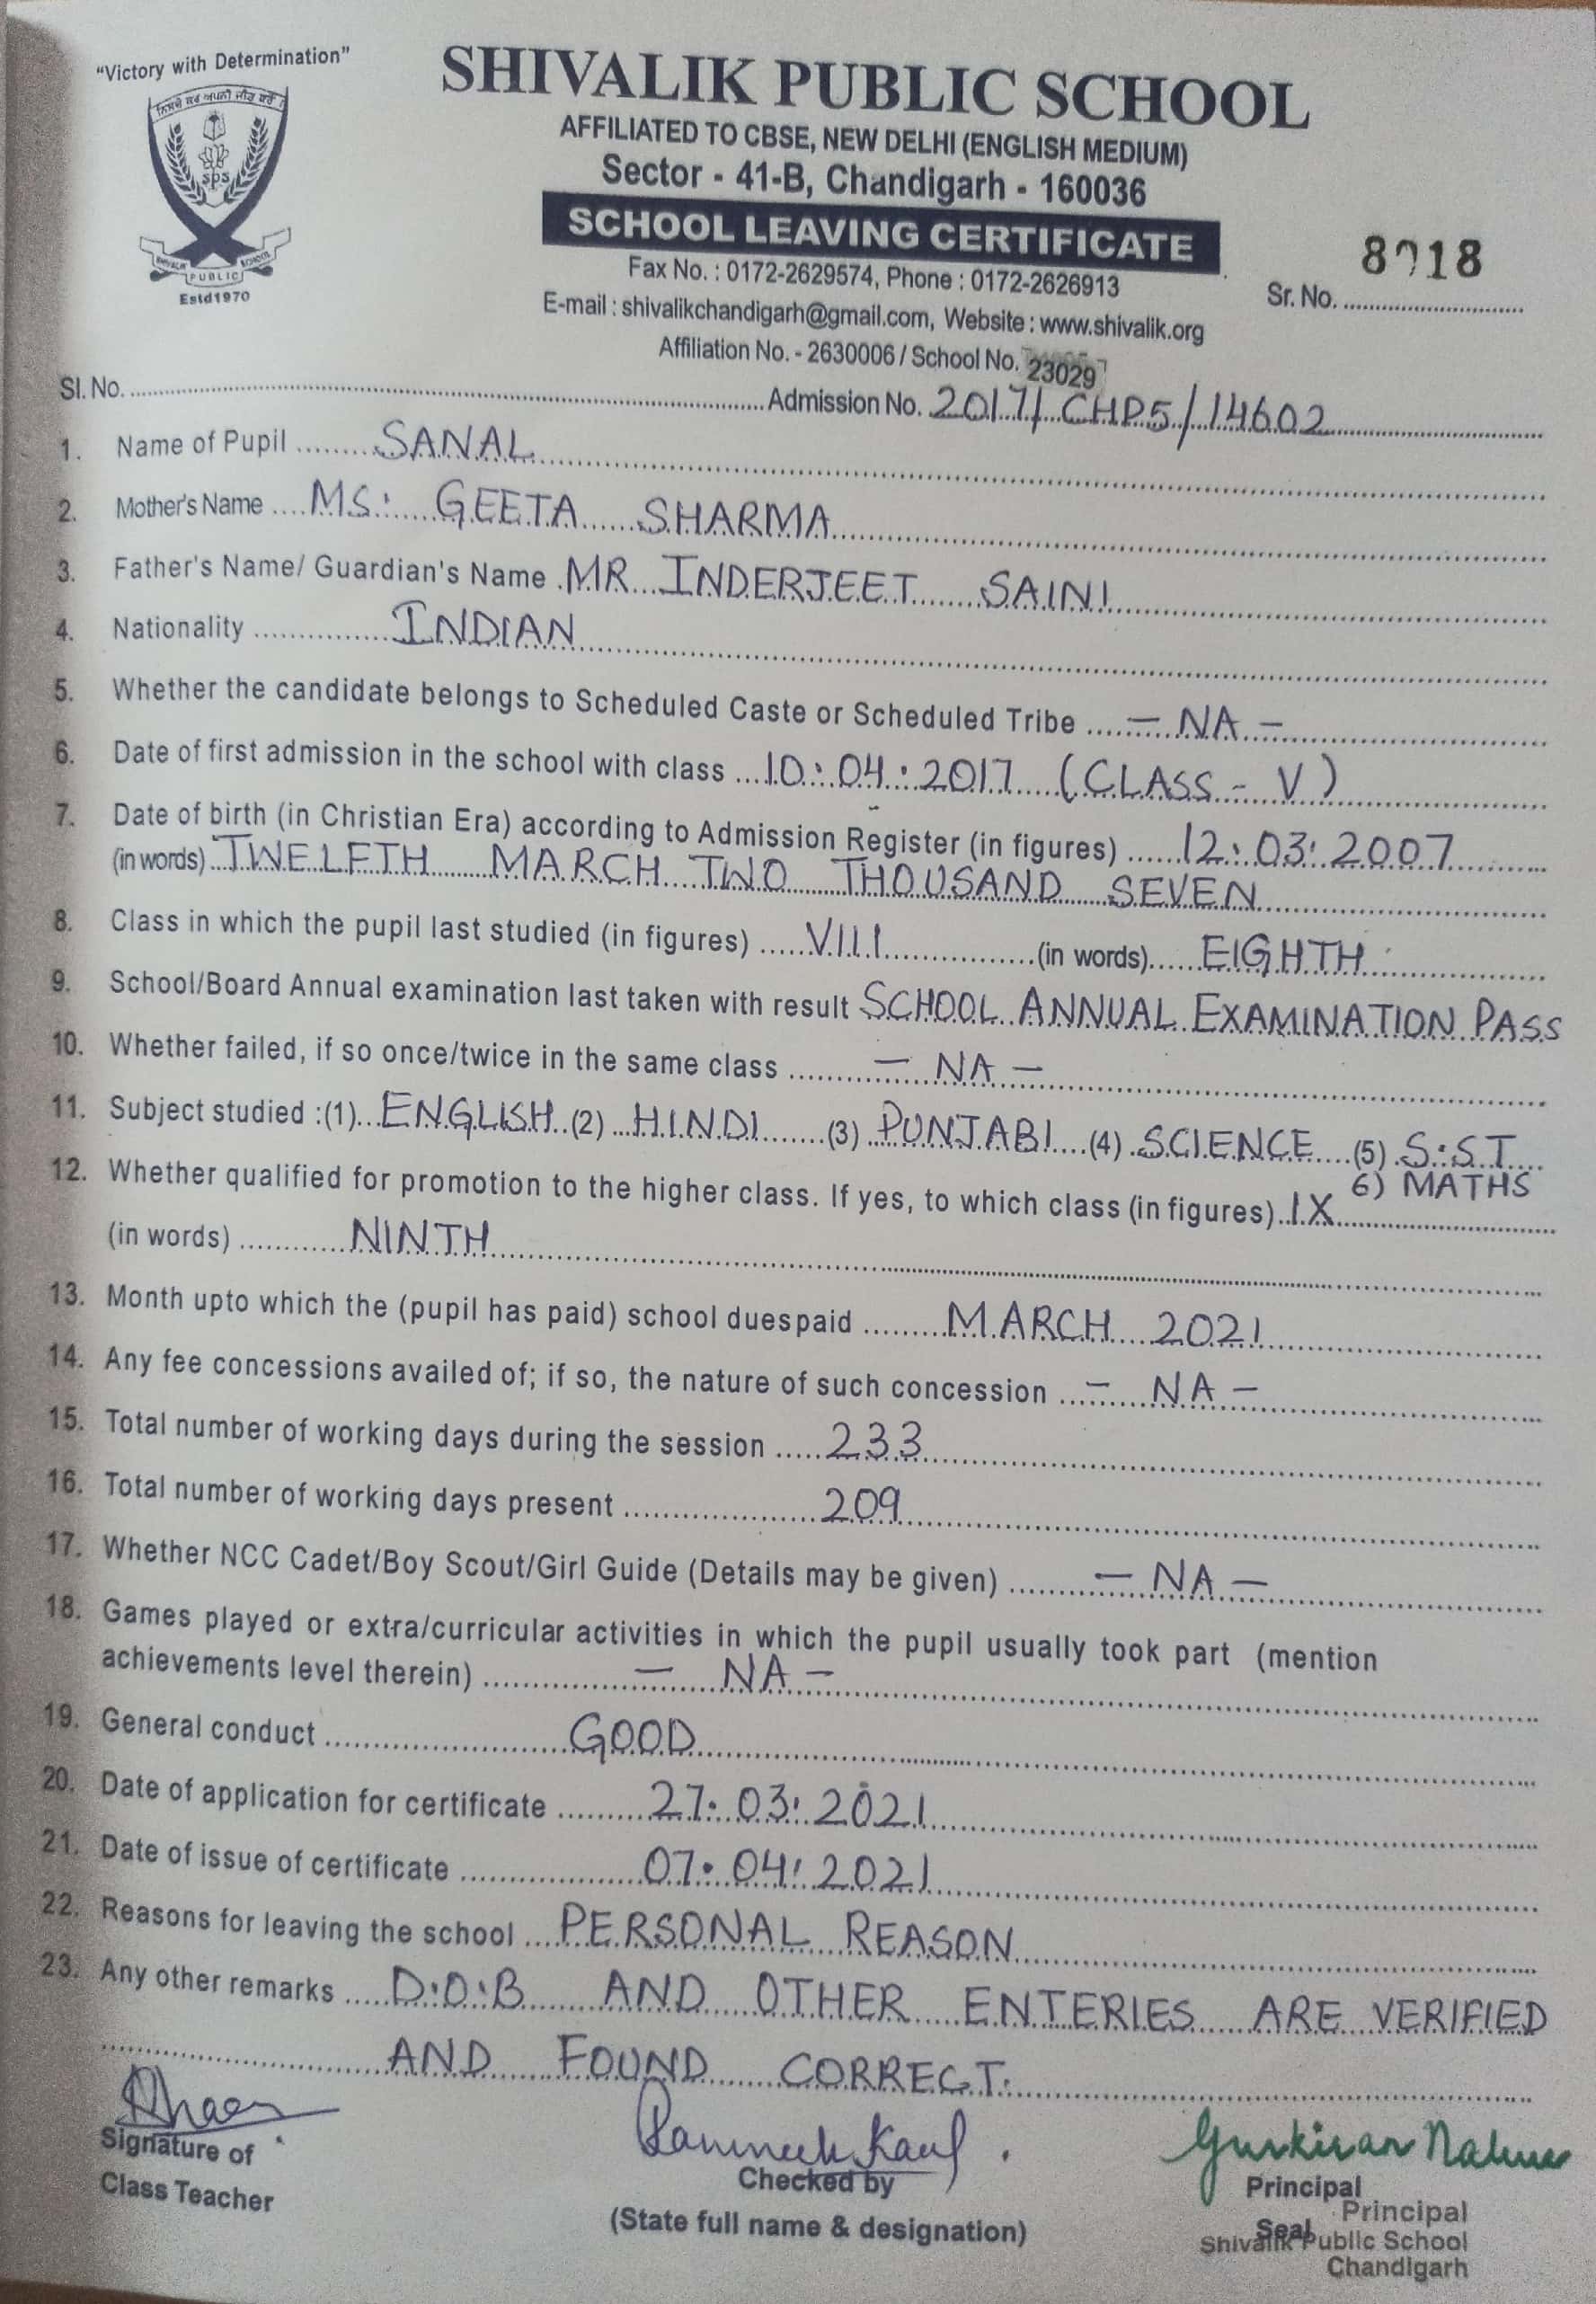 "Victory with Determination"
SHIVALIK PUBLIC SCHOOL
AFFILIATED TO CBSE, NEW DELHI (ENGLISH MEDIUM)
Sector - 41-B, Chandigarh - 160036
SCHOOL LEAVING CERTIFICATE
Fax No. : 0172-2629574, Phone : 0172-2626913
E-mail : shivalikchandigarh@gmail.com, Website : www.shivalik.org
Affiliation No. - 2630006 / School No. 23029
sps
PUBLIC
Estd1970
Sr. No.
Sl. No. Admission No. 2017/CHD5/14602
1. Name of Pupil SANAL
2. Mother's Name MS. GEETA SHARMA
3. Father's Name/ Guardian's Name MR INDERJEET SAINI
4. Nationality INDIAN
5. Whether the candidate belongs to Scheduled Caste or Scheduled Tribe - NA -
6. Date of first admission in the school with class 10.04.2017 (CLASS - V)
7. Date of birth (in Christian Era) according to Admission Register (in figures) 12.03.2007
(in words) TWELFTH MARCH TWO THOUSAND SEVEN
8. Class in which the pupil last studied (in figures) VIII (in words) EIGHTH
9. School/Board Annual examination last taken with result SCHOOL ANNUAL EXAMINATION PASS
10. Whether failed, if so once/twice in the same class - NA -
11. Subject studied :(1) ENGLISH (2) HINDI (3) PUNJABI (4) SCIENCE (5) S.ST
6) MATHS
12. Whether qualified for promotion to the higher class. If yes, to which class (in figures) IX
(in words) NINTH
13. Month upto which the (pupil has paid) school duespaid MARCH 2021
14. Any fee concessions availed of; if so, the nature of such concession - NA -
15. Total number of working days during the session 233
16. Total number of working days present 209
17. Whether NCC Cadet/Boy Scout/Girl Guide (Details may be given) - NA -
18. Games played or extra/curricular activities in which the pupil usually took part (mention
achievements level therein) - NA -
19. General conduct GOOD
20. Date of application for certificate 27.03.2021
21. Date of issue of certificate 07.04.2021
22. Reasons for leaving the school PERSONAL REASON
23. Any other remarks D.O.B AND OTHER ENTERIES ARE VERIFIED
AND FOUND CORRECT.
Signature of
Class Teacher
Kaul
Checked by
(State full name & designation)
Gurkiran
Principal
Seal
Principal
Shivalik Public School
Chandigarh